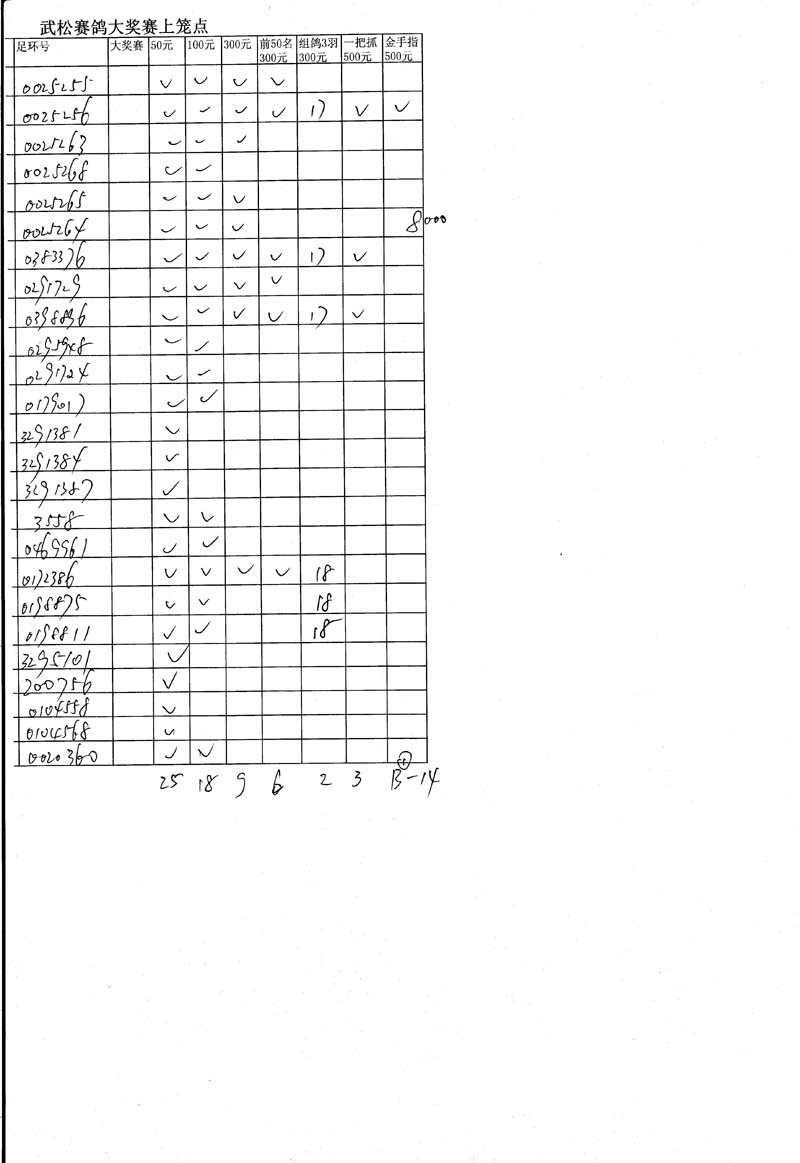 武松赛鸽大奖赛上笼点
足环号 大奖赛 50元 100元 300元 前50名300元 组鸽3羽300元 一把抓500元 金手指500元
0025255 ✓ ✓ ✓ ✓
0025256 ✓ ✓ ✓ ✓ 17 ✓ ✓
0025263 ✓ ✓ ✓
0025268 ✓ ✓
0025265 ✓ ✓ ✓
0025264 ✓ ✓ ✓ 8000
0383376 ✓ ✓ ✓ ✓ 17 ✓
0291729 ✓ ✓ ✓ ✓
0398896 ✓ ✓ ✓ ✓ 17 ✓
0295948 ✓ ✓
0291724 ✓ ✓
0179017 ✓ ✓
3291381 ✓
3291384 ✓
3291387 ✓
3558 ✓ ✓
0469961 ✓ ✓
0172386 ✓ ✓ ✓ ✓ 18
0198875 ✓ ✓ 18
0198811 ✓ ✓ 18
3295101 ✓
200756 ✓
0104558 ✓
0104568 ✓
0020360 ✓ ✓
25 18 9 6 2 3 B-14